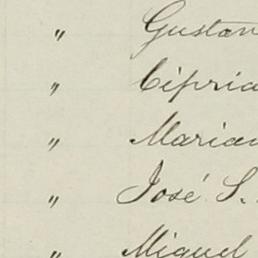 " Gustav
" Cipria
" Marian
" José S.
" Miguel